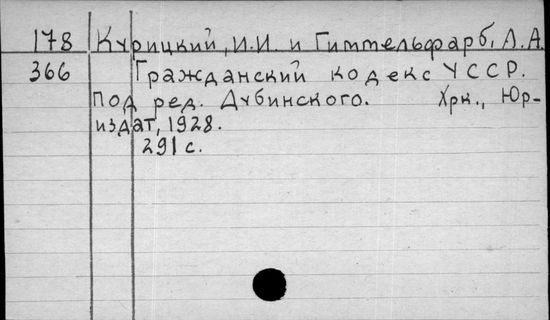 178 Курицкий, И.И. и Гиттельфарб, А.А.
366 Гражданский кодекс УССР.
Под ред. Дубинского. Хрк., Юр-
издат, 1928.
291 с.